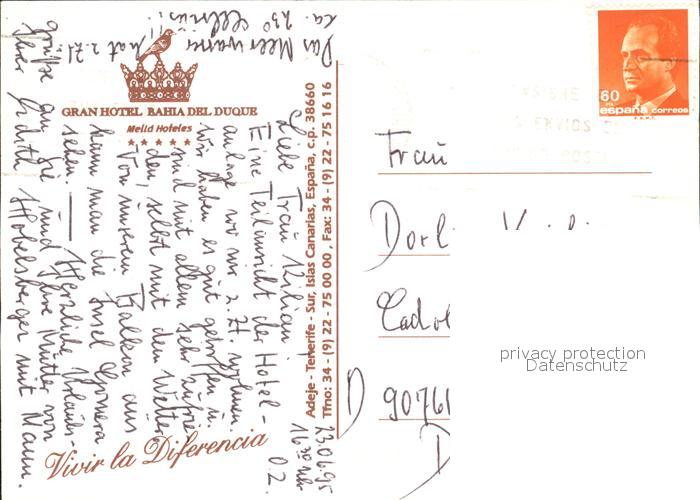 GRAN HOTEL BAHIA DEL DUQUE
Meliá Hoteles
Adeje - Tenerife - Sur, Islas Canarias, España, c.p. 38660
Tfno: 34 - (9) 22 - 75 00 00, Fax: 34 - (9) 22 - 75 16 16
Vivir la Diferencia
23.06.95
16.30 Uhr
O.Z.
Liebe Frau Kilian,
Eine Teilansicht der Hotel-
anlage wo wir z. Zt. wohnen.
Wir haben es gut getroffen u.
sind mit allem sehr zufrie-
den, selbst mit dem Wetter.
Von unserem Balkon aus
kann man die Insel Gomera
sehen.
Herzliche Urlaubs-
grüße an Sie und Ihre Mutter von
Ihrer Edith Hobelsberger mit Mann.
Das Meerwasser hat z. Zt.
ca. 23° Celsius!
60
PTA
españa correos
F.N.M.T.
ENVIOS
Frau
Dorl
Cadol
D
9076
D
privacy protection
Datenschutz